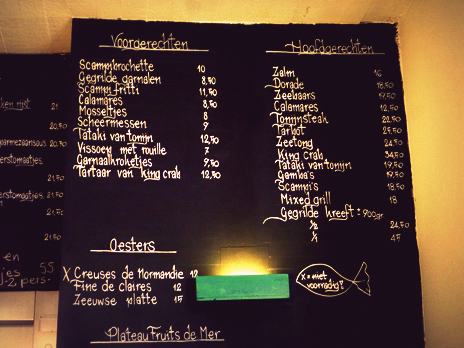 Voorgerechten
Scampibrochette 10
Gegrilde garnalen 8,50
Scampi fritti 11,50
Calamares 8,50
Mosseltjes 8
Scheermessen 9
Tataki van tonijn 12,50
Vissoep met rouille 7
Garnaalkroketjes 9,50
Tartaar van king crab 12,50
Oesters
X Creuses de Normandie 12
Fine de claires 12
Zeeuwse platte 15
Plateau Fruits de Mer
Hoofdgerechten
Zalm 16
Dorade 18,50
Zeebaars 19,50
Calamares 12,50
Tonijnsteak 22,50
Tarbot 25,50
Zeetong 24,50
King crab 34,50
Tataki van tonijn 19,50
Gamba's 19,50
Scampi's 18,50
Mixed grill 18
Gegrilde kreeft: 900gr
1/2 24,50
1/1 45
x = niet
voorradig!
ken rijst 21
20,50
parmezaansous 20,50
erstomaatjes
21,50
erstomaatjes 21,50
21,50
21,50
en 55
jes
2 pers.